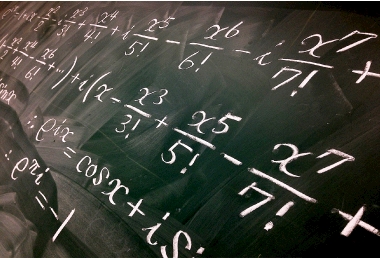 x³/3! + x⁴/4! + i x⁵/5! - x⁶/6! - i x⁷/7! +
x⁴/4! - x⁶/6! + ...) + i(x - x³/3! + x⁵/5! - x⁷/7! +
∴ eⁱˣ = cosx + i
∴ e^πi = -1